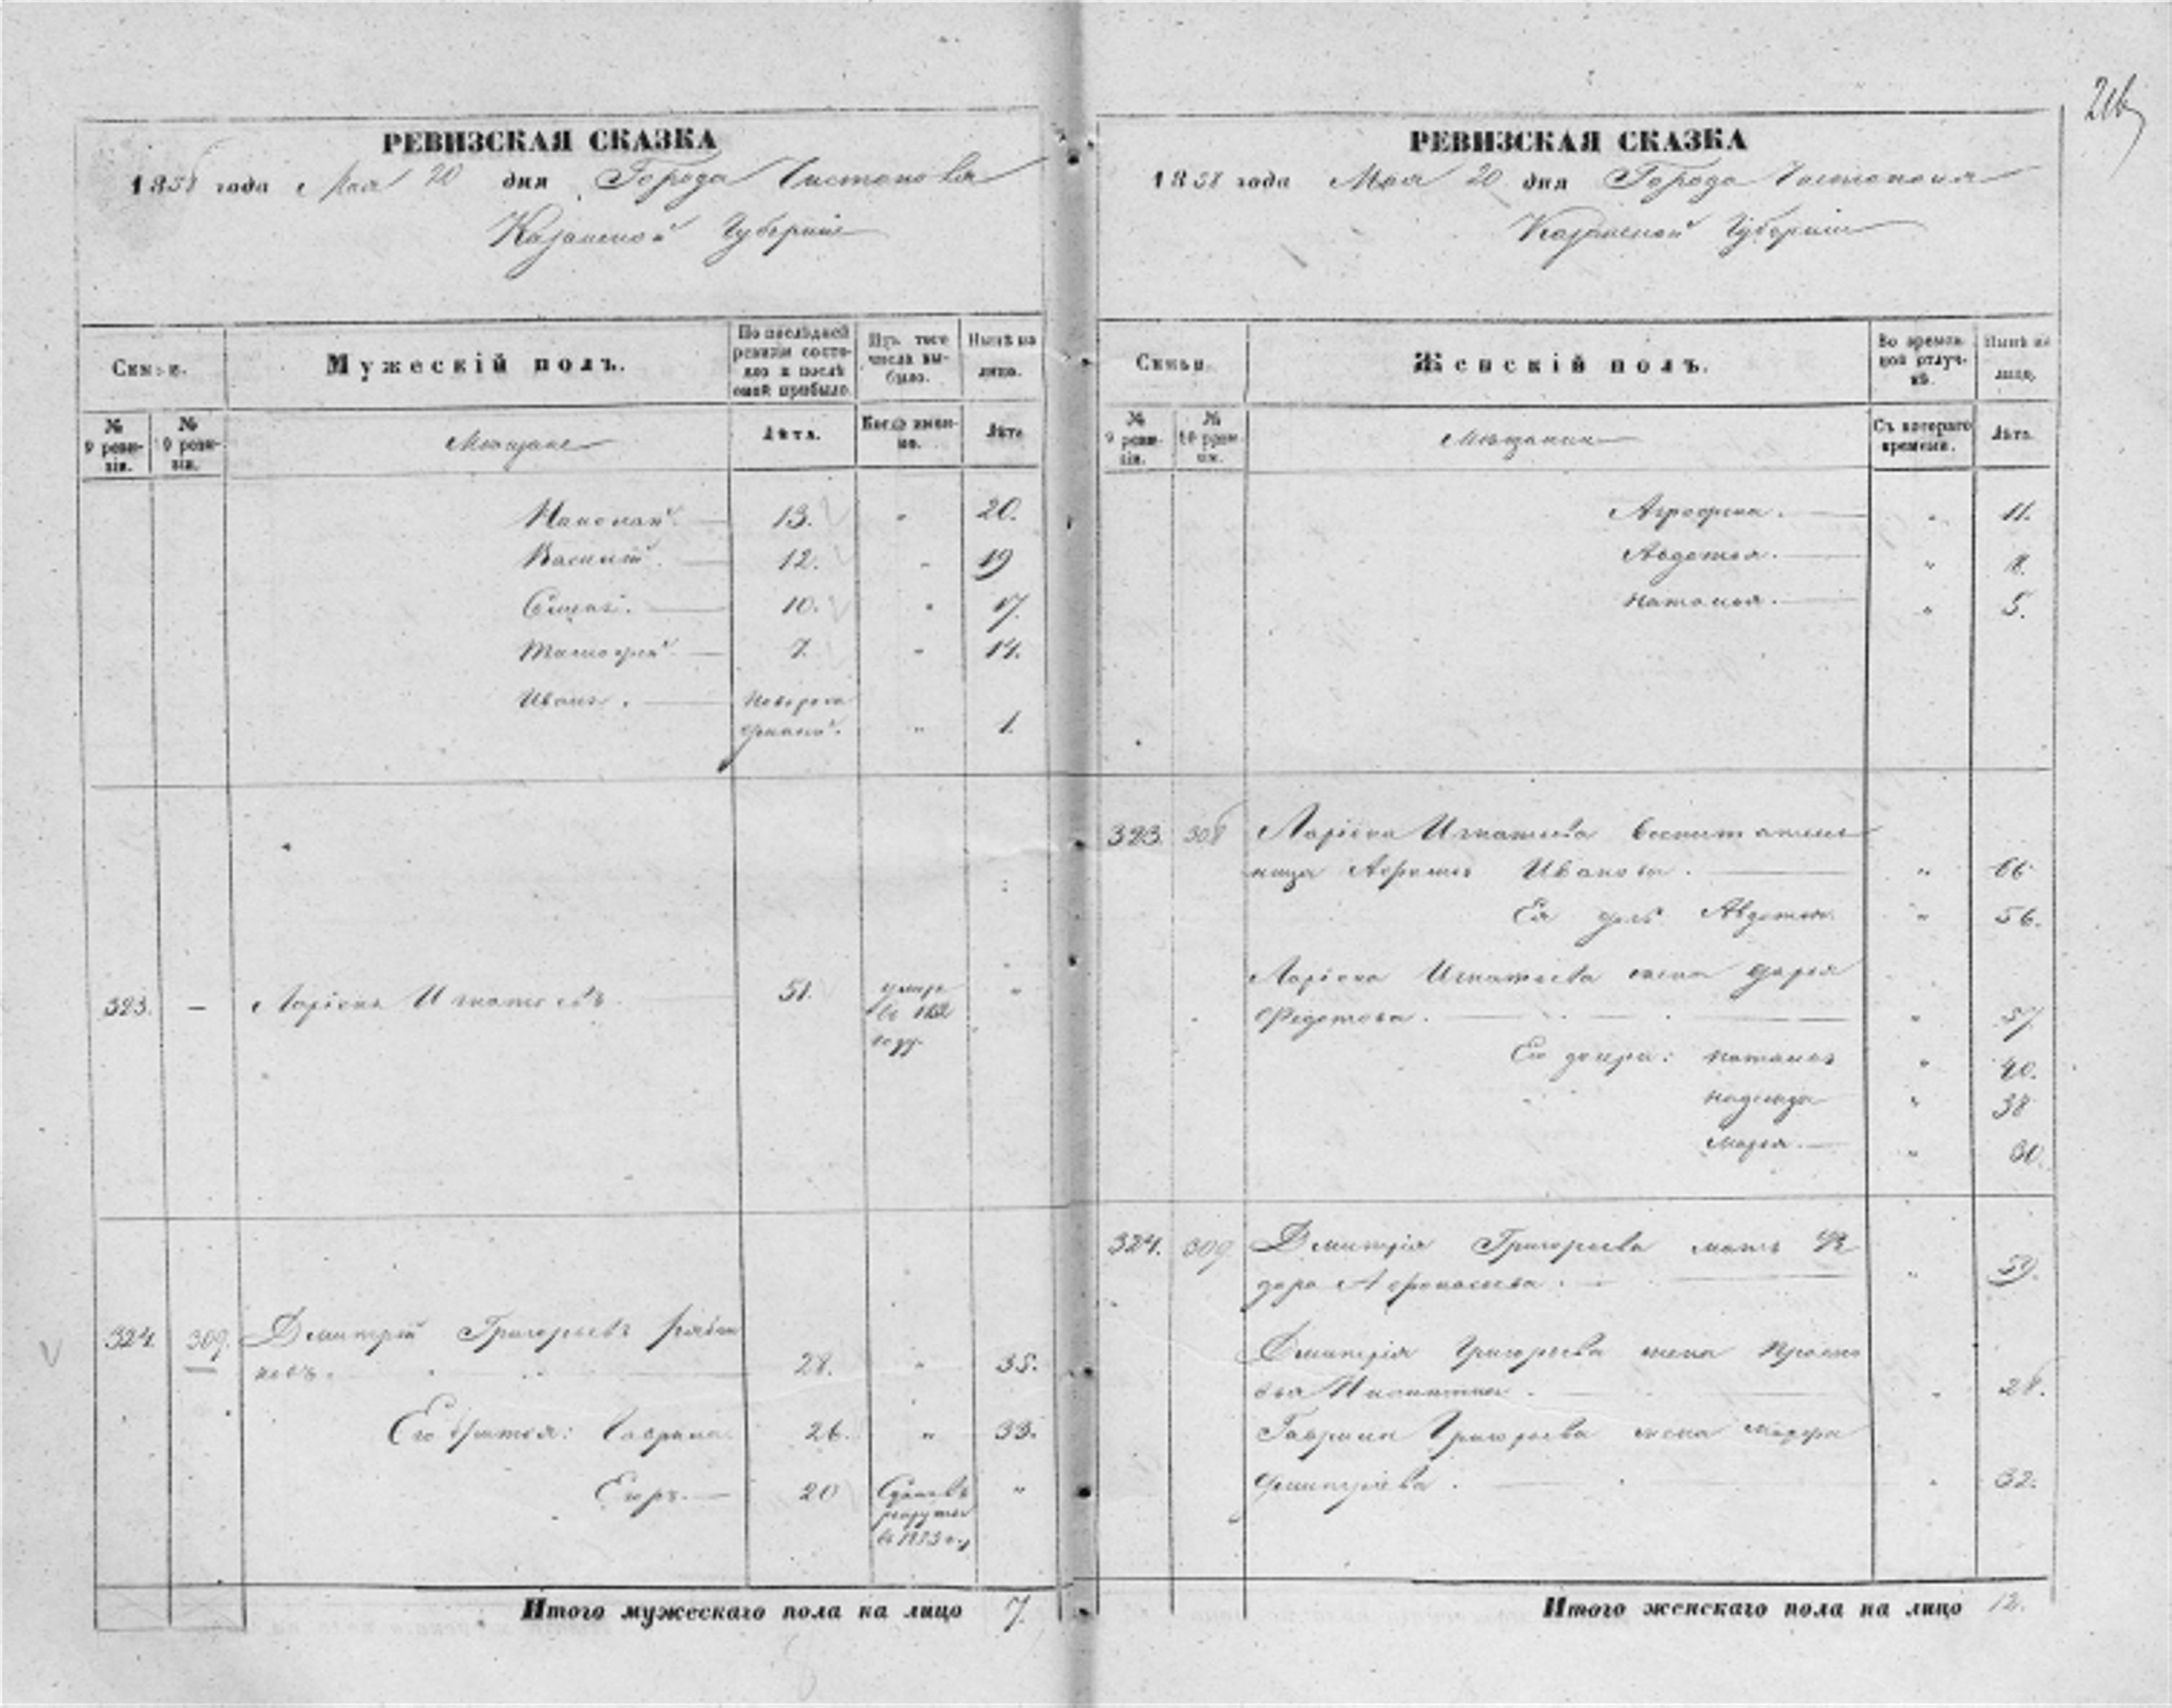 216
РЕВИЗСКАЯ СКАЗКА
1858 года Мая 20 дня Города Чистополя
Казанской Губерніи
Семьи.
Мужескій полъ.
По послѣдней ревизіи состояло и послѣ оной прибыло.
Изъ того числа выбыло.
Нынѣ на лицо.
№ 9 ревизіи.
№ 9 ревизіи.
Мѣщане
Лѣта.
Когда именно.
Лѣта
Николай. 13. " 20.
Василій. 12. " 19
10. " 17.
Тимофей 7. " 14.
Иванъ. Новорожденный. " 1.
323. — Ларіонъ Игнатьевъ 51. умеръ въ 1852 году "
324. 309. Дмитрій Григорьевъ
новъ. 28. " 35.
Его братья: Гаврила 26. " 33.
Егоръ. 20 Сданъ въ рекруты въ 1853 г. "
Итого мужескаго пола на лицо 7.
РЕВИЗСКАЯ СКАЗКА
1858 года Мая 20 дня Города Чистополя
Казанской Губерніи
Семьи.
Женскій полъ.
Во временной отлучкѣ.
Нынѣ на лицо.
№ 9 ревизіи.
№ 10 ревизіи.
Мѣщанки
Съ котораго времени.
Лѣта.
Агрофена. " 11.
Авдотья. " 8.
Наталья. " 5.
323. 308 Ларіона Игнатьева воспитатель
ница Иванова. " 66
Ея дочь Авдотья. " 56.
Ларіона Игнатьева жена Дарья
Федотова. " 57
Его дочери: Наталья " 40.
Надежда " 38
Марья. " 30.
324. 309 Дмитрія Григорьева мать Фе
дора Афонасьева. " 59.
Дмитрія Григорьева жена Праско
вья Никитина. " 28.
Гаврилы Григорьева жена
Дмитріева. " 32.
Итого женскаго пола на лицо 12.